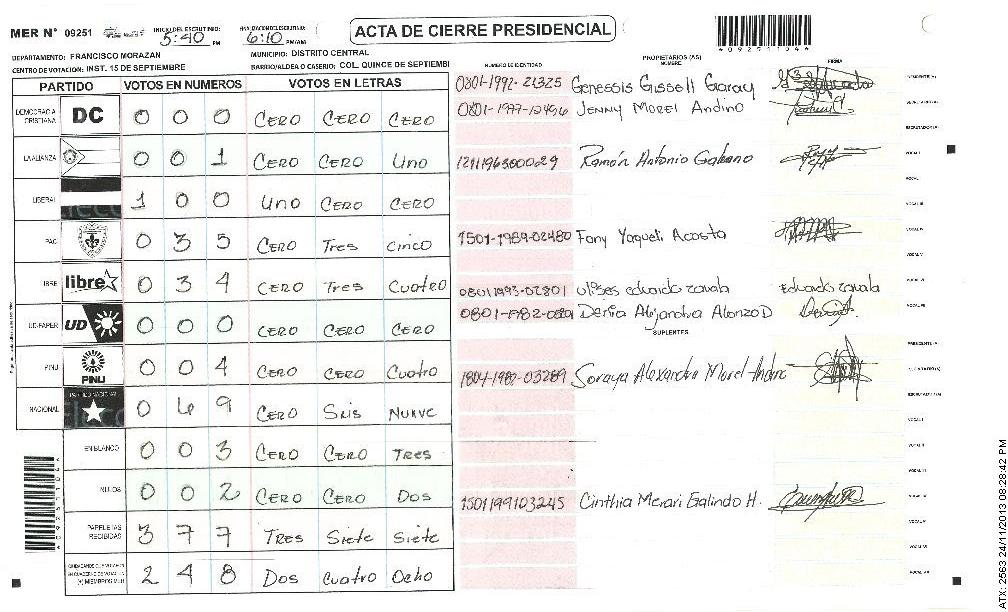 MER N° 09251 INICIO DEL ESCRUTINIO: 5:40 PM FINALIZACION ESCRUTINIO: 6:10 PM/AM ACTA DE CIERRE PRESIDENCIAL
DEPARTAMENTO: FRANCISCO MORAZAN MUNICIPIO: DISTRITO CENTRAL
CENTRO DE VOTACION: INST. 15 DE SEPTIEMBRE BARRIO/ALDEA O CASERIO: COL. QUINCE DE SEPTIEMBI
PARTIDO VOTOS EN NUMEROS VOTOS EN LETRAS NUMERO DE IDENTIDAD PROPIETARIOS (AS) NOMBRE FIRMA
DEMOCRACIA CRISTIANA DC 0 0 0 CERO CERO CERO
LA ALIANZA 0 0 1 CERO CERO Uno
LIBERAL 1 0 0 Uno CERO CERO
PAC 0 3 5 CERO Tres Cinco
LIBRE libre 0 3 4 CERO Tres Cuatro
UD-FAPER UD 0 0 0 CERO CERO CERO
PINU PINU 0 0 4 CERO CERO Cuatro
NACIONAL 0 6 9 CERO Seis Nueve
EN BLANCO 0 0 3 CERO CERO TRES
NULOS 0 0 2 CERO CERO Dos
PAPELETAS RECIBIDAS 3 7 7 TRES Siete Siete
2 4 8 Dos Cuatro Ocho
0801-1992-21325 Genessis Gissell Garay
0801-1977-12496 Jenny Morel Andino
1211196300029 Ramón Antonio Galeano
1501-1989-02480 Fany Yaqueli Acosta
08011993-02801 Ulises eduardo zavala Eduardo zavala
Denia Alejandra Alonzo D
SUPLENTES
1804-1982-03289 Soraya Alexandra Morel Andino
1501199103245 Cinthia Merari Galindo H.
ATX: 2563 24/11/2013 08:28:42 PM